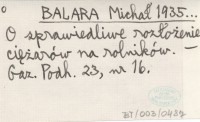 BALARA Michał 1935...
O sprawiedliwe rozłożenie
ciężarów na rolników. —
Gaz. Podh. 23, nr 16.
BJ/003/0432